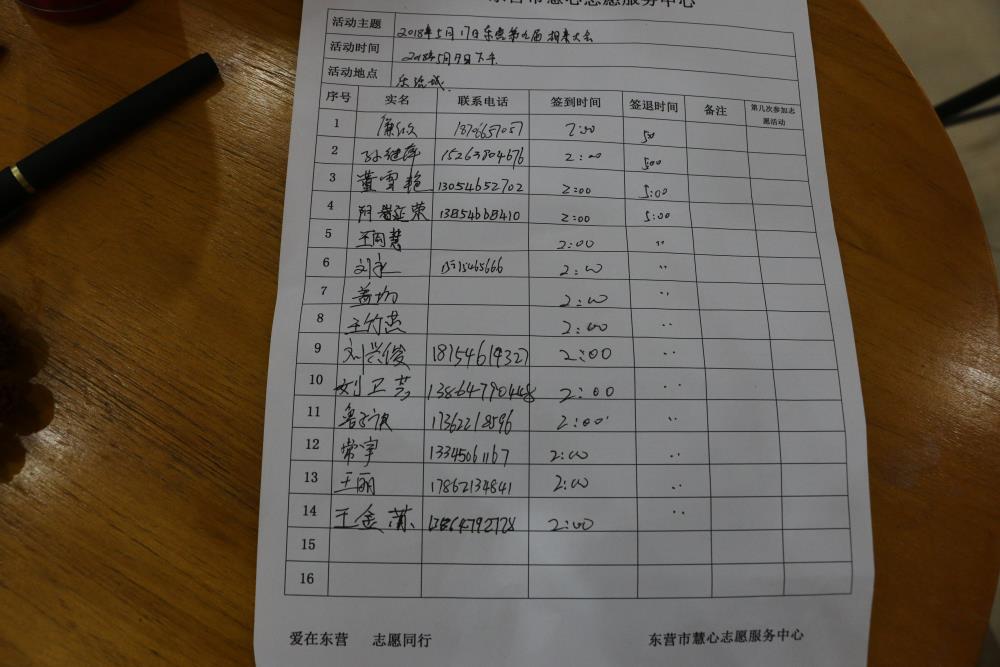 东营市慧心志愿服务中心
活动主题 2018年5月17日东营第九届相亲大会
活动时间 2018年5月17日下午
活动地点
序号 实名 联系电话 签到时间 签退时间 备注 第几次参加志愿活动
1 2:00
2 15263804676 2:00 500
3 董雪艳 13054652702 2:00 5:00
4 13854668410 2:00 5:00
5 2:00 ..
6 刘永 2:00 ..
7 2:00 ..
8 王竹燕 2:00 ..
9 刘兴俊 18154619327 2:00 ..
10 刘卫芳 13864790448 2:00 ..
11 17362218596 2:00 ..
12 常宇 13345061167 2:00 ..
13 王丽 17862134841 2:00 ..
14 王金 13864792728 2:00 ..
15
16
爱在东营 志愿同行 东营市慧心志愿服务中心